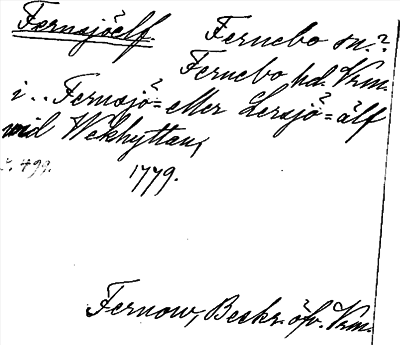 Fernsjöelf. Fernebo sn.?
Fernebo hd. Vrm.
i .. Fernsjö= eller Lersjö=älf
wid Wekhyttan,
s. 499. 1779.
Fernow, Beskr. öfv. Vrm.